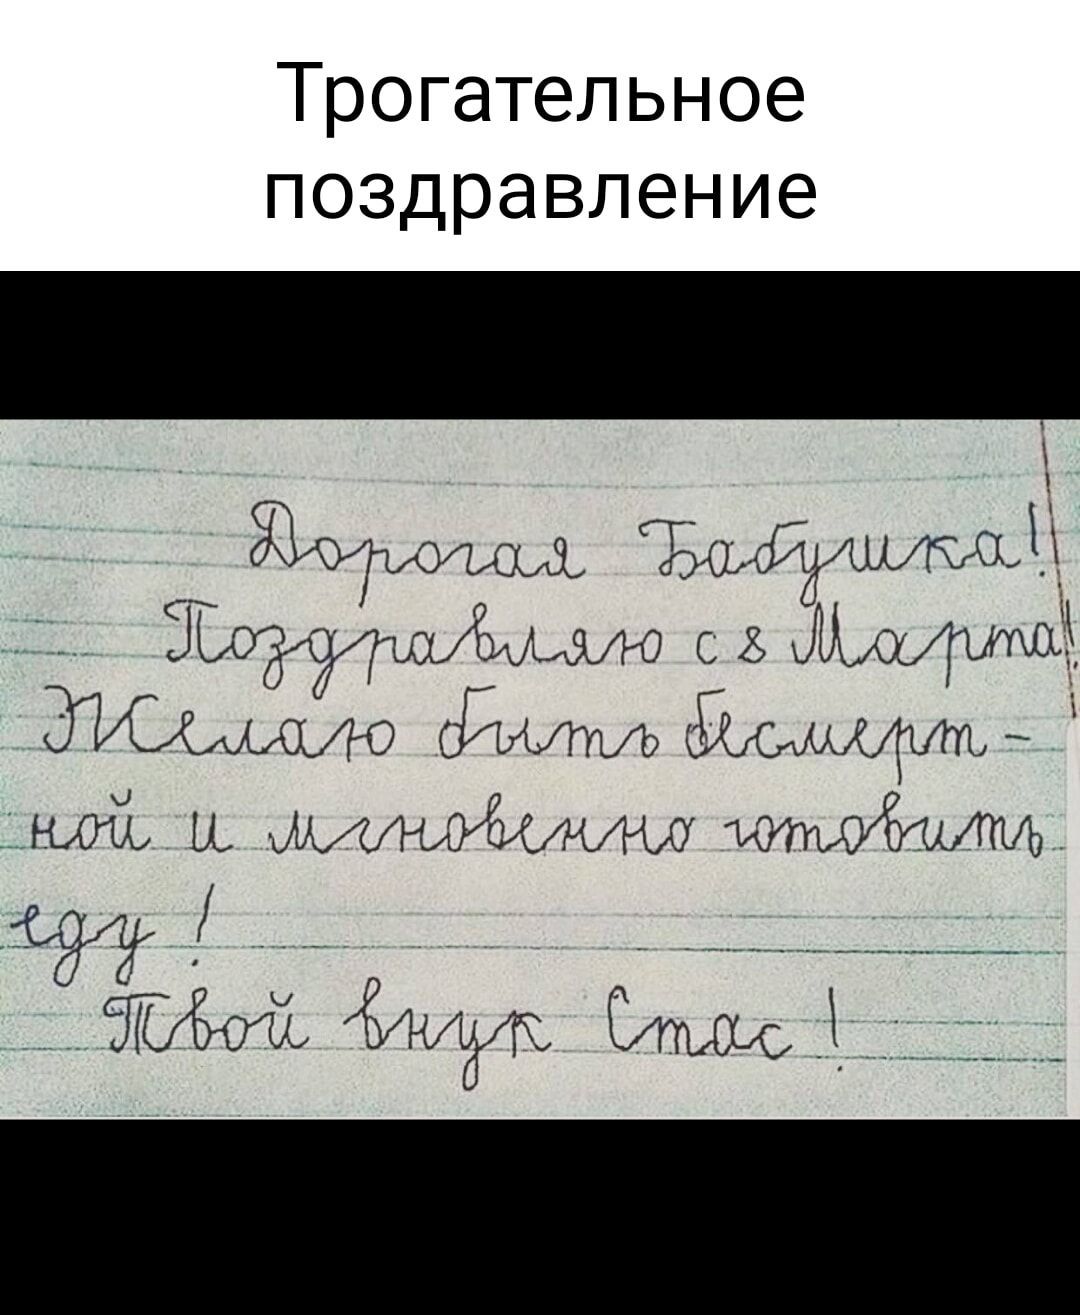 Трогательное
поздравление
Дорогая Бабушка!
Поздравляю с 8 Марта!
Желаю быть бесмерт-
ной и мгновенно готовить
еду!
Твой внук Стас!